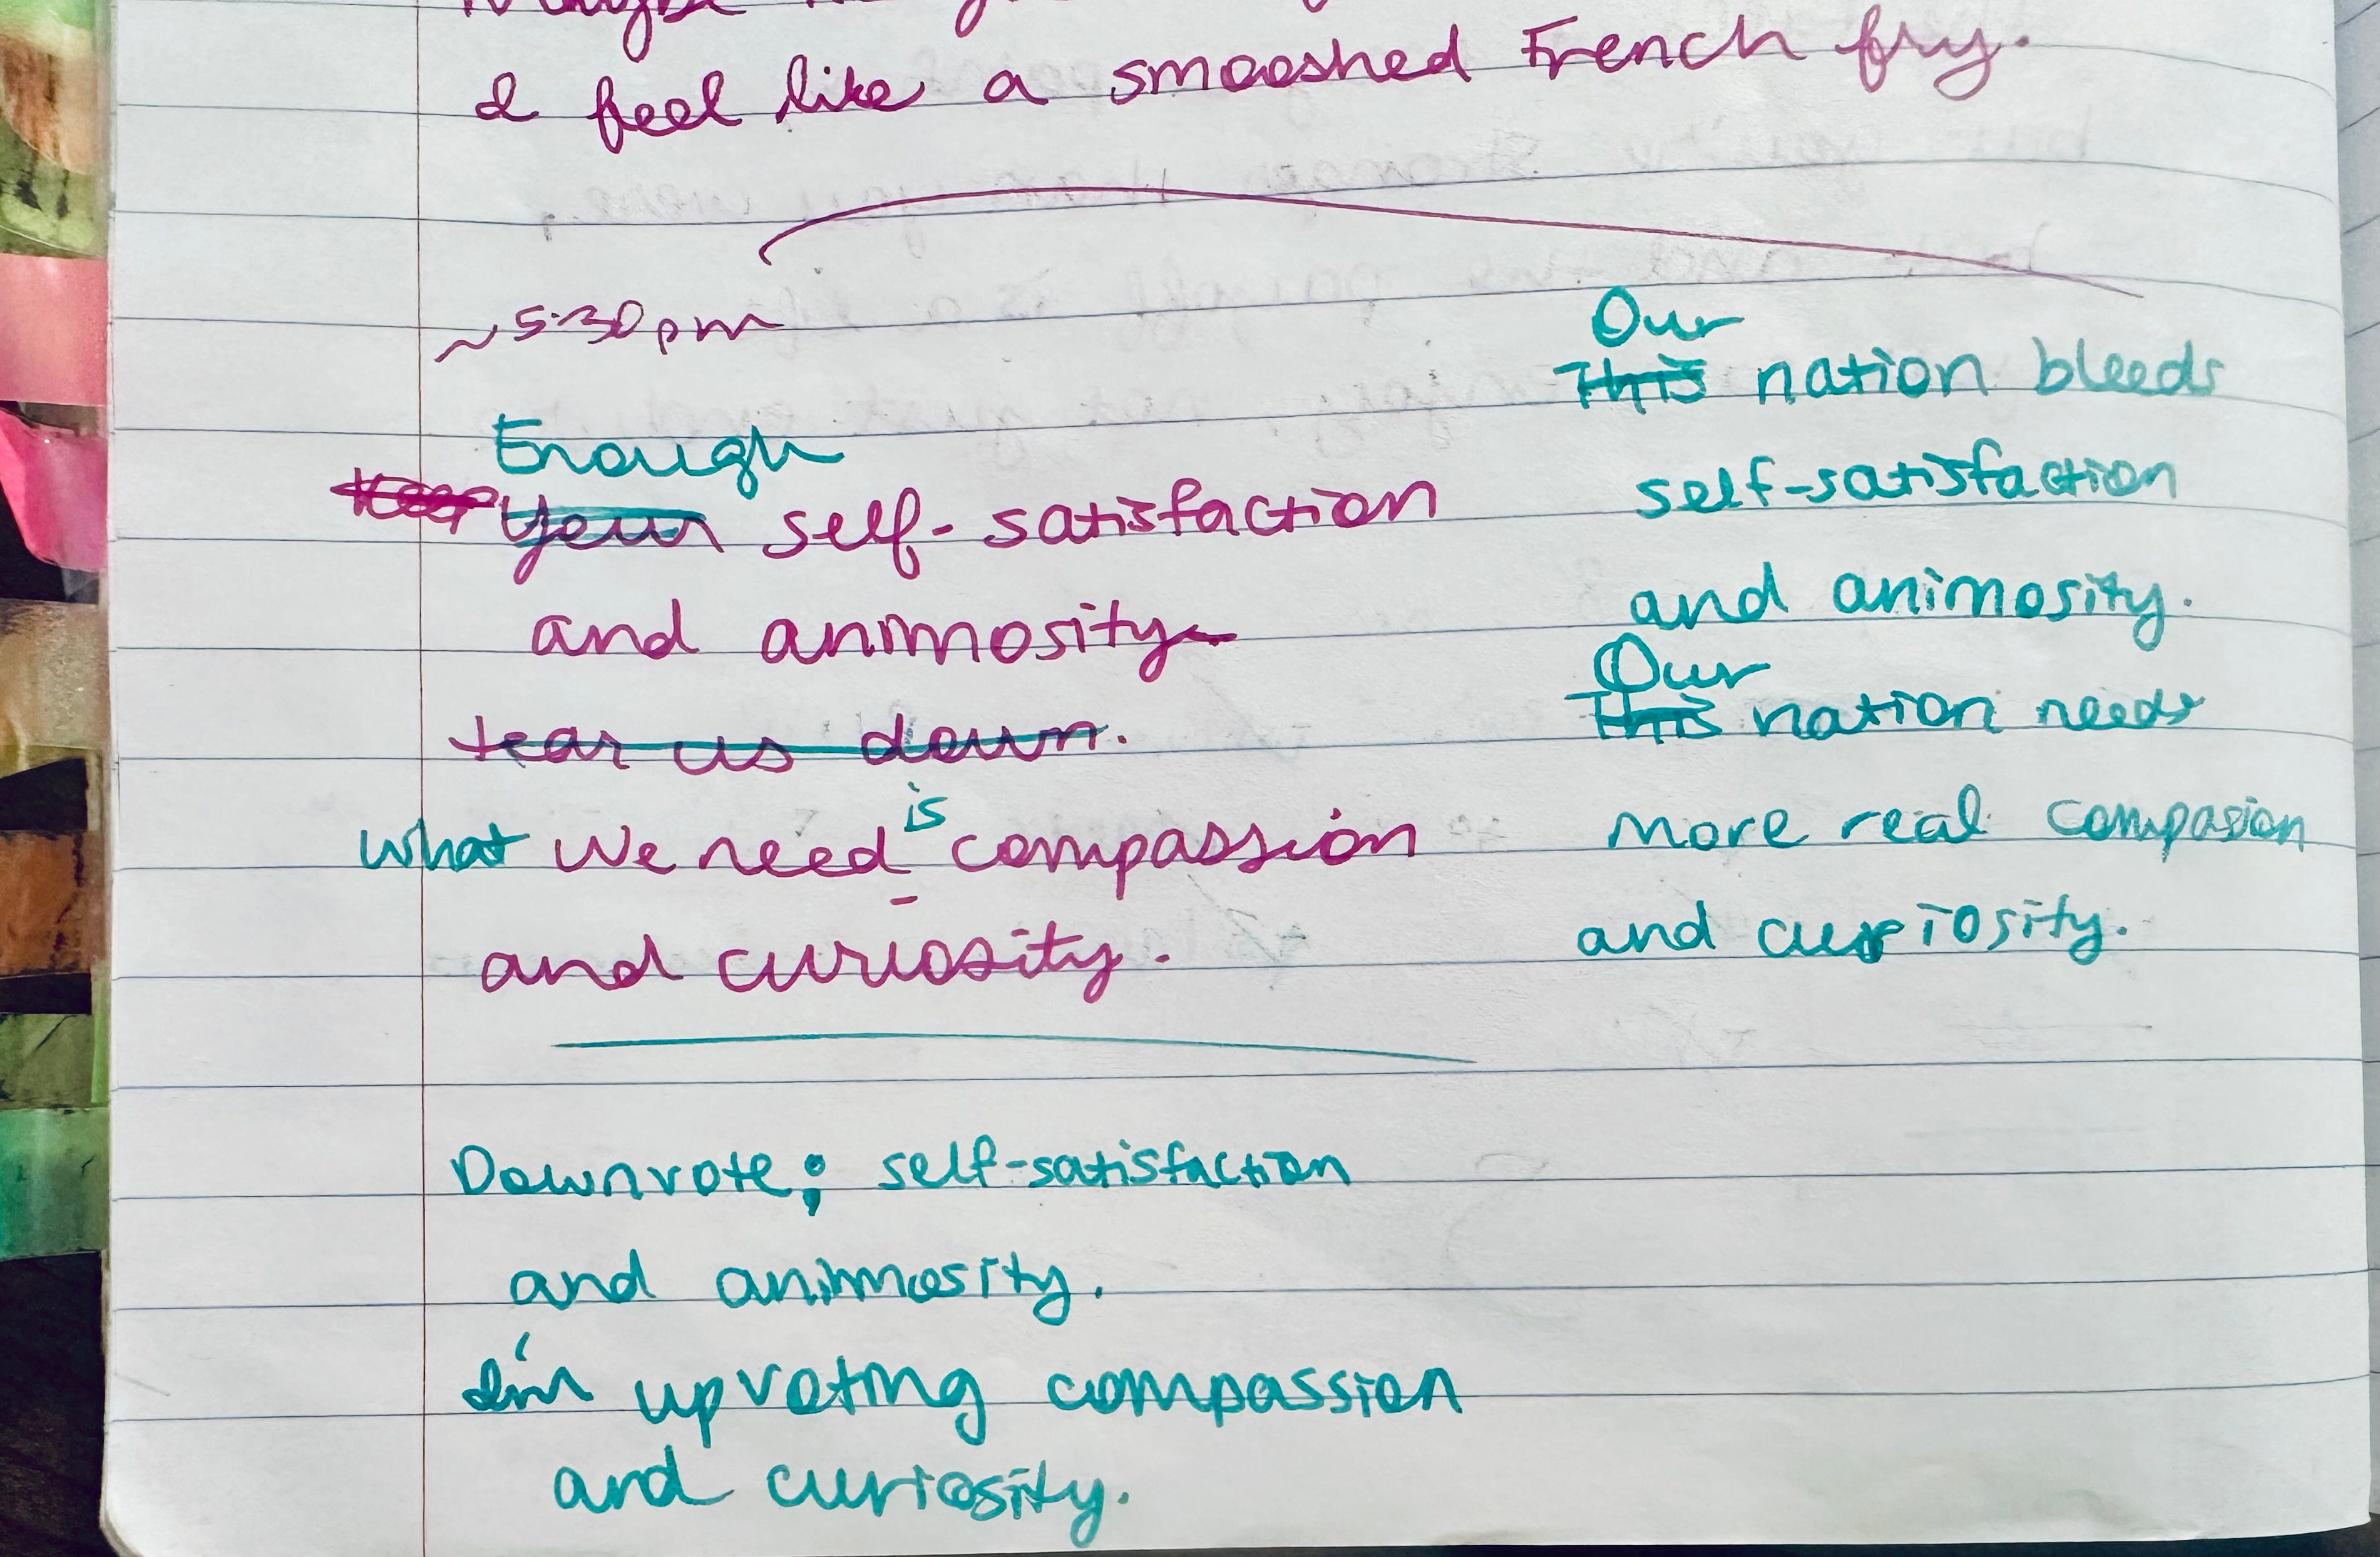 I feel like a smooshed French fry.
~5:30pm
Enough
Your self-satisfaction
and animosity
tear us down.
is
what We need compassion
and curiosity.
Our
This nation bleeds
self-satisfaction
and animosity.
Our
This nation needs
more real compasion
and curiosity.
Downvote; self-satisfaction
and animosity.
I'm upvoting compassion
and curiosity.